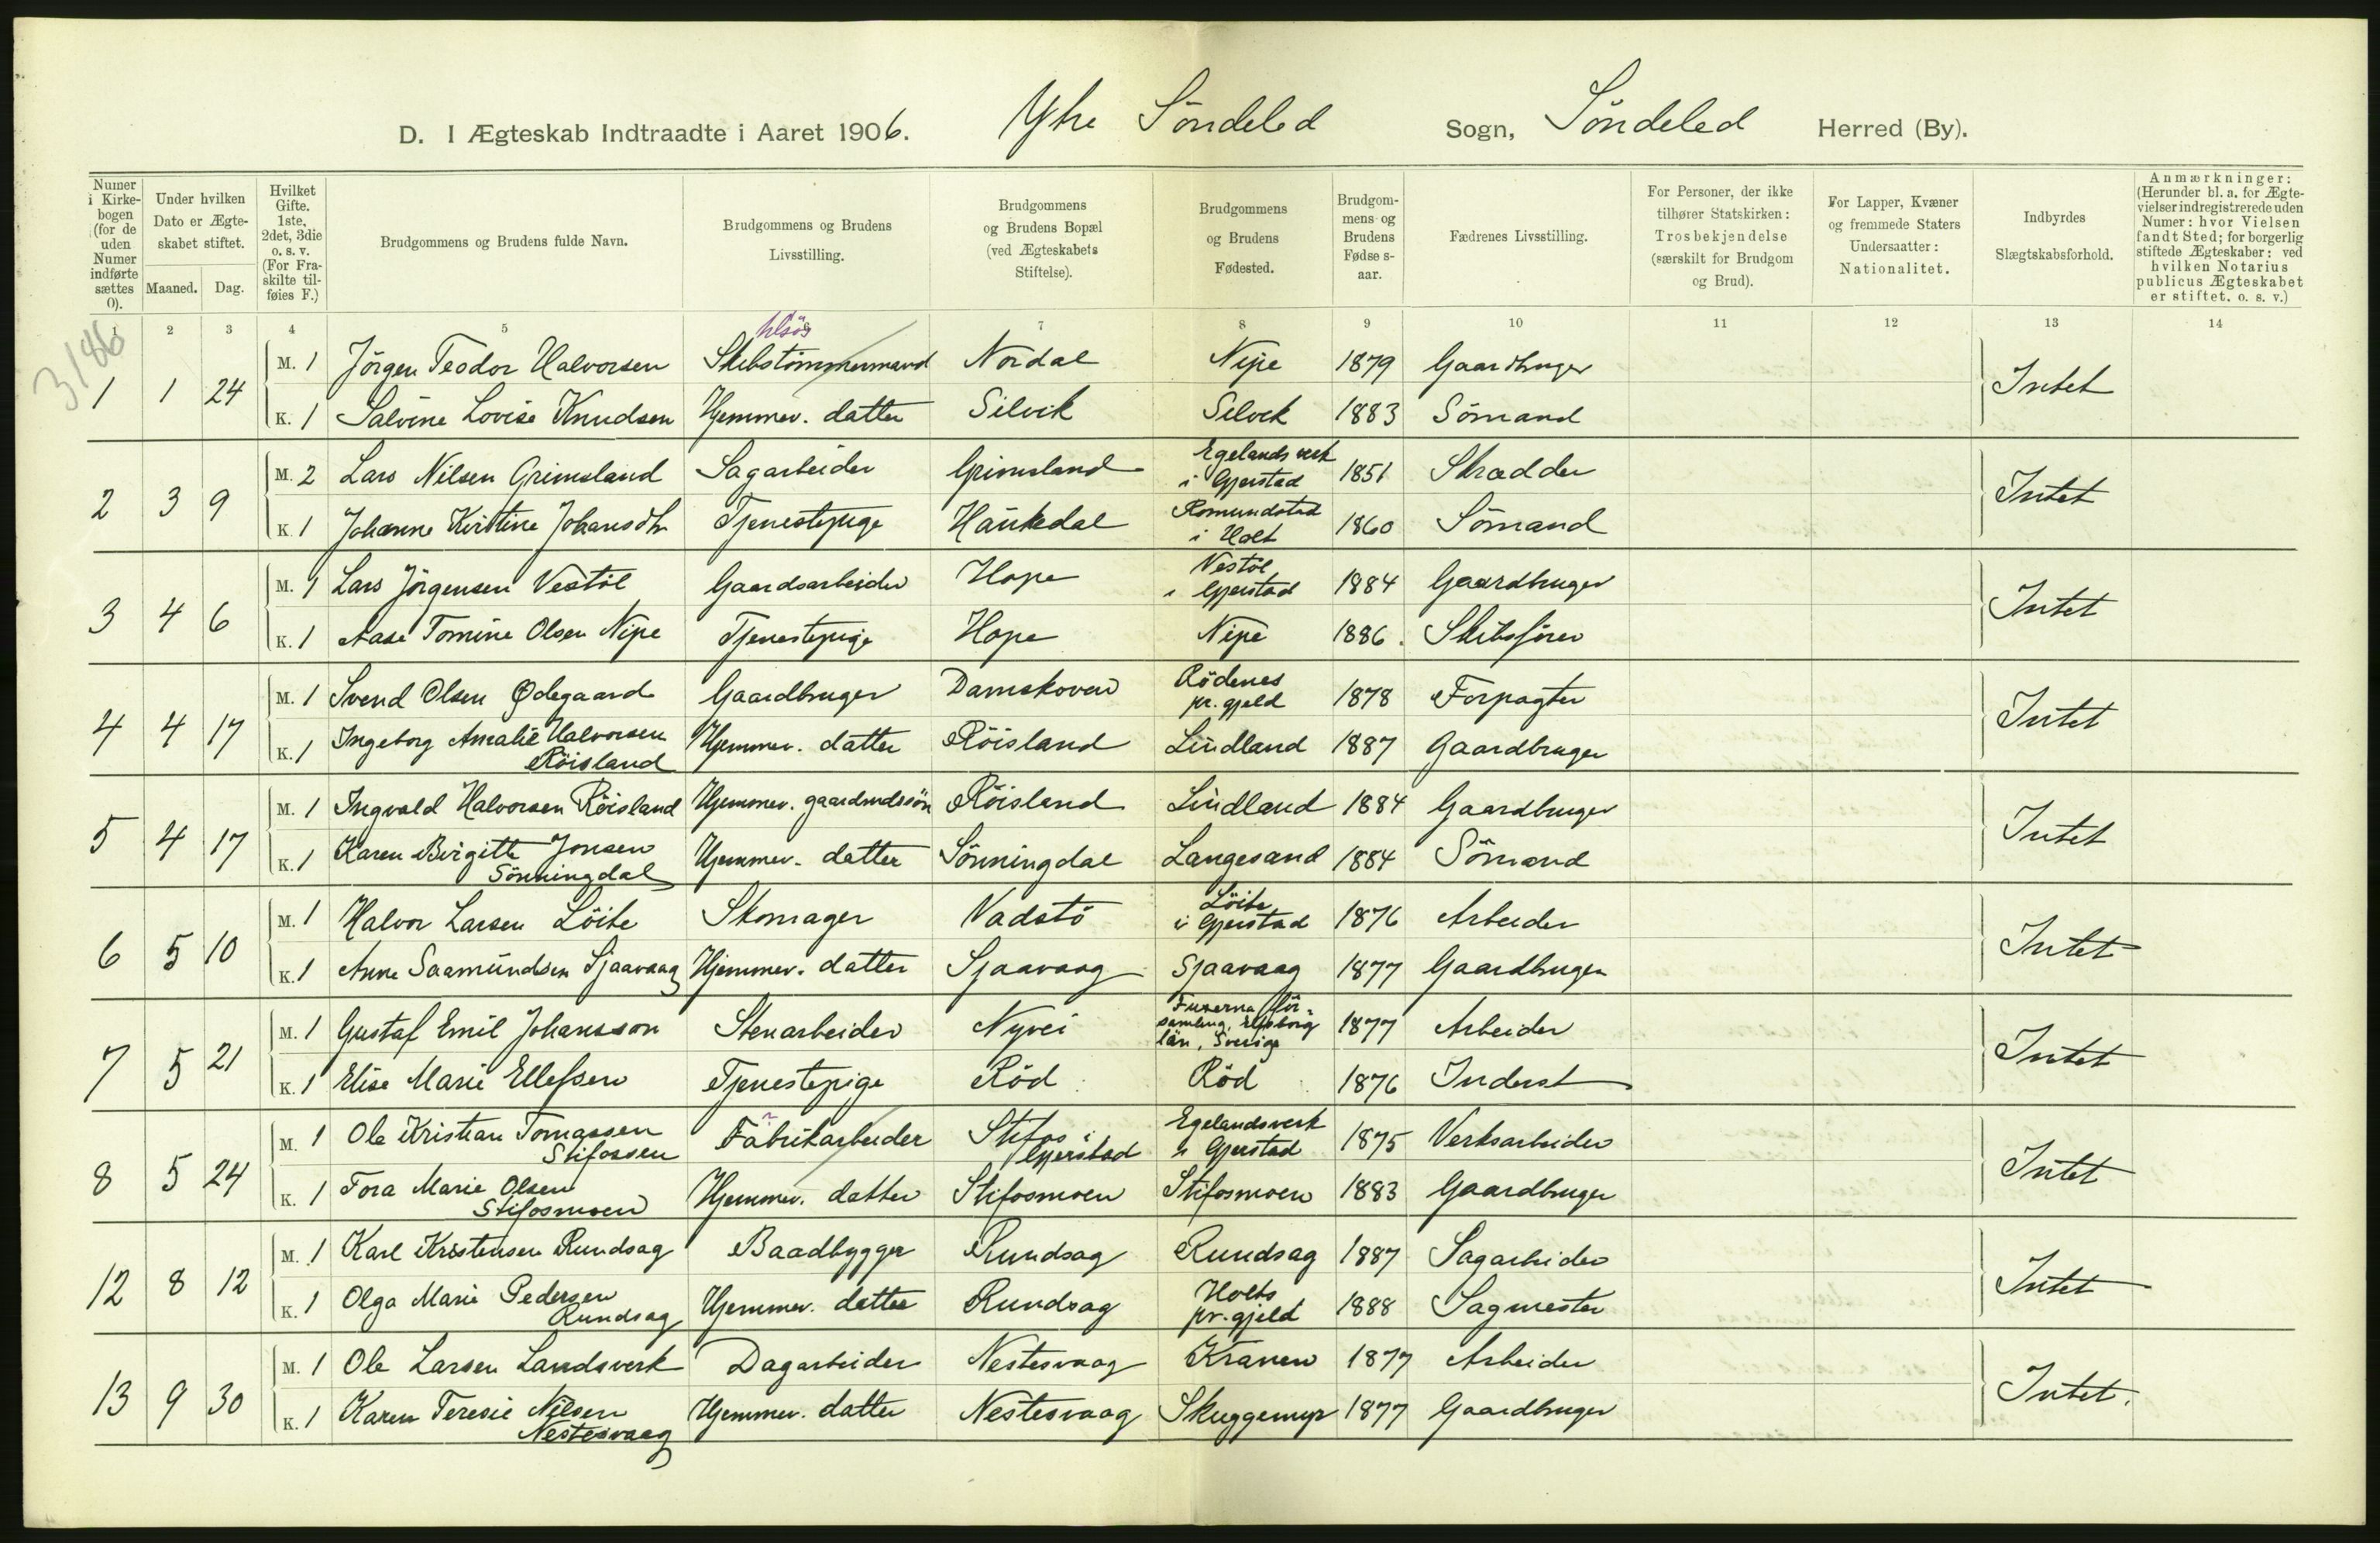 D. I Ægteskab Indtraadte i Aaret 1906. Ytre Söndeled Sogn, Söndeled Herred (By).
Numer i Kirkebogen (for de uden Numer indførte sættes 0). | Under hvilken Dato er Ægteskabet stiftet. Maaned. Dag. | Hvilket Gifte. 1ste, 2det, 3die o. s. v. (For Fraskilte tilføies F.) | Brudgommens og Brudens fulde Navn. | Brudgommens og Brudens Livsstilling. | Brudgommens og Brudens Bopæl (ved Ægteskabets Stiftelse). | Brudgommens og Brudens Fødested. | Brudgommens og Brudens Fødselsaar. | Fædrenes Livsstilling. | For Personer, der ikke tilhører Statskirken: Trosbekjendelse (særskilt for Brudgom og Brud). | For Lapper, Kvæner og fremmede Staters Undersaatter: Nationalitet. | Indbyrdes Slægtskabsforhold. | Anmærkninger: (Herunder bl. a. for Ægtevielser indregistrerede uden Numer: hvor Vielsen fandt Sted; for borgerlig stiftede Ægteskaber: ved hvilken Notarius publicus Ægteskabet er stiftet. o. s. v.)
1 2 3 4 5 6 7 8 9 10 11 12 13 14
3186
1 1 24 M. 1 Jörgen Teodor Halvorsen Skibstömmermand Nordal Nipe 1879 Gaardbruger Intet
K. 1 Salvine Lovise Knudsen Hjemmev. datter Silvik Selvik 1883 Sömand
2 3 9 M. 2 Lars Nilsen Grimsland Sagarbeider Grimsland Egelands verk i Gjerstad 1851 Skrædder Intet
K. 1 Johanne Kirstine Johansdtr Tjenestepige Haukedal Romundstad i Holt 1860 Sömand
3 4 6 M. 1 Lars Jörgensen Vestöl Gaardsarbeider Hope Vestöl i Gjerstad 1884 Gaardbruger Intet
K. 1 Aase Tomine Olsen Nipe Tjenestepige Hope Nipe 1886. Skibsförer
4 4 17 M. 1 Svend Olsen Ødegaard Gaardbruger Damskoven Rödenes pr. gjeld 1878 Forpagter Intet
K. 1 Ingeborg Amalie Halvorsen Röisland Hjemmev. datter Röisland Lindland 1887 Gaardbruger
5 4 17 M. 1 Ingvald Halvorsen Röisland Hjemmev. gaardmdssön Röisland Lindland 1884 Gaardbruger Intet
K. 1 Karen Birgitte Jonsen Sönningdal Hjemmev. datter Sönningdal Langesand 1884 Sömand
6 5 10 M. 1 Halvor Larsen Löite Skomager Vadstö Löite i Gjerstad 1876 Arbeider Intet
K. 1 Anne Saamundsen Sjaavaag Hjemmev. datter Sjaavaag Sjaavaag 1877 Gaardbruger
7 5 21 M. 1 Gustaf Emil Johansson Stenarbeider Nyvei Fuxerna församling, Elfsborg län, Sverige 1877 Arbeider Intet
K. 1 Elise Marie Ellefsen Tjenestepige Röd Röd 1876 Inderst
8 5 24 M. 1 Ole Kristian Tomassen Stifossen Fabrikarbeider Stifos i Gjerstad Egelandsverk i Gjerstad 1875 Verksarbeider Intet
K. 1 Tora Marie Olsen Stifosmoen Hjemmev. datter Stifosmoen Stifosmoen 1883 Gaardbruger
12 8 12 M. 1 Karl Kristensen Rundsag Baadbygger Rundsag Rundsag 1887 Sagarbeider Intet
K. 1 Olga Marie Pedersen Rundsag Hjemmev. datter Rundsag Holts pr. gjeld 1888 Sagmester
13 9 30 M. 1 Ole Larsen Landsverk Dagarbeider Nestesvaag Kranen 1877 Arbeider Intet.
K. 1 Karen Teresie Nilsen Nestesvaag Hjemmev. datter Nestesvaag Skuggemyr 1877 Gaardbruger